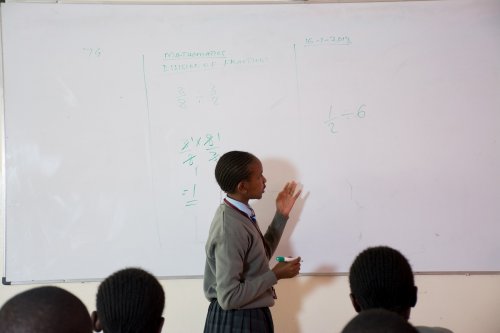 76
MATHEMATICS
DIVISION OF FRACTIONS
3/8 ÷ 3/8
3/8 × 8/3
= 1
1/2 ÷ 6